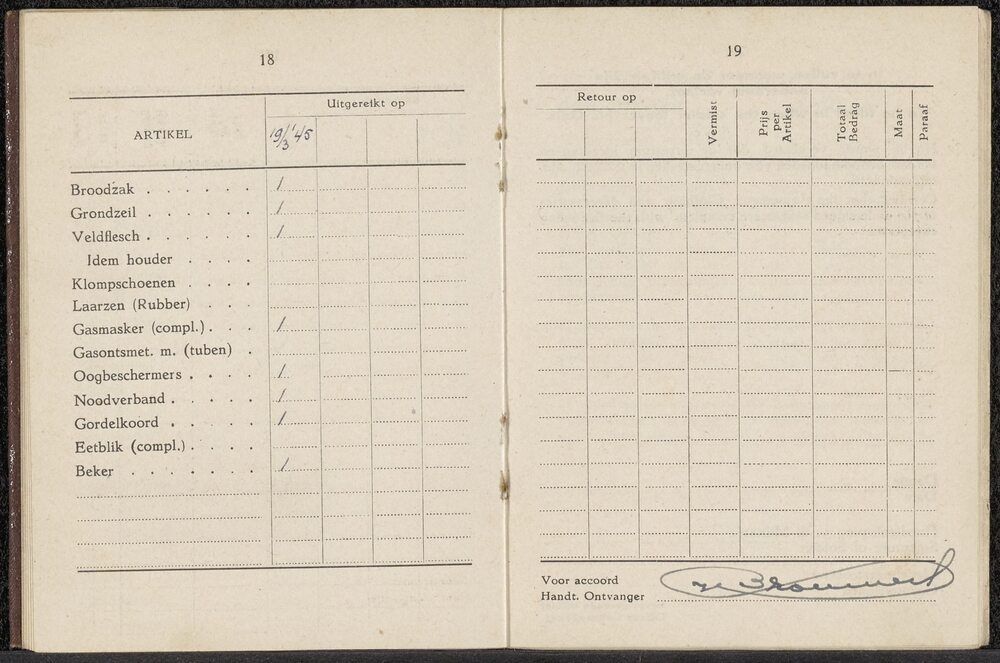 18
ARTIKEL
Uitgereikt op
19/3 '45
Broodzak . . . . . . 1
Grondzeil . . . . . . 1
Veldflesch . . . . . . 1
Idem houder . . . .
Klompschoenen . . . .
Laarzen (Rubber) . . .
Gasmasker (compl.) . . . 1
Gasontsmet. m. (tuben) .
Oogbeschermers . . . . 1
Noodverband . . . . . 1
Gordelkoord . . . . . 1
Eetblik (compl.) . . . .
Beker . . . . . . . 1
19
Retour op
Vermist
Prijs per Artikel
Totaal Bedrag
Maat
Paraaf
Voor accoord
Handt. Ontvanger